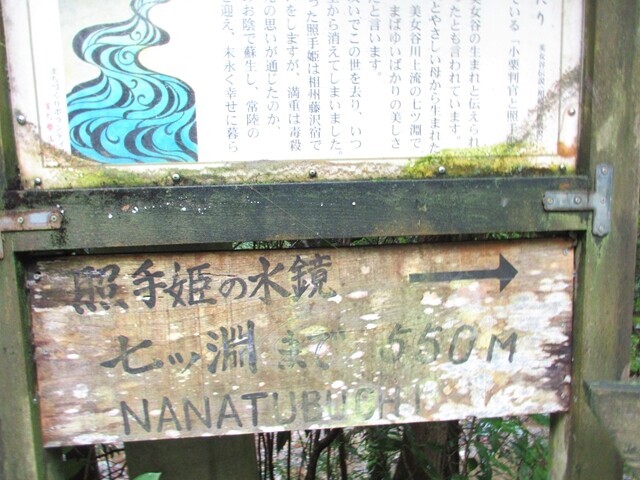 ている「小栗判官と照手
美女谷の生まれと伝えられ
たとも言われています。
とやさしい母から生まれた
美女谷川上流の七ツ淵で
まばゆいばかりの美しさ
だと言います。
いでこの世を去り、いつ
から消えてしまいました。
った照手姫は相州藤沢宿で
をしますが、満重は毒殺
の思いが通じたのか、
お陰で蘇生し、常陸の
を迎え、末永く幸せに暮ら
照手姫の水鏡
七ッ淵まで 550M
NANATUBUCHI